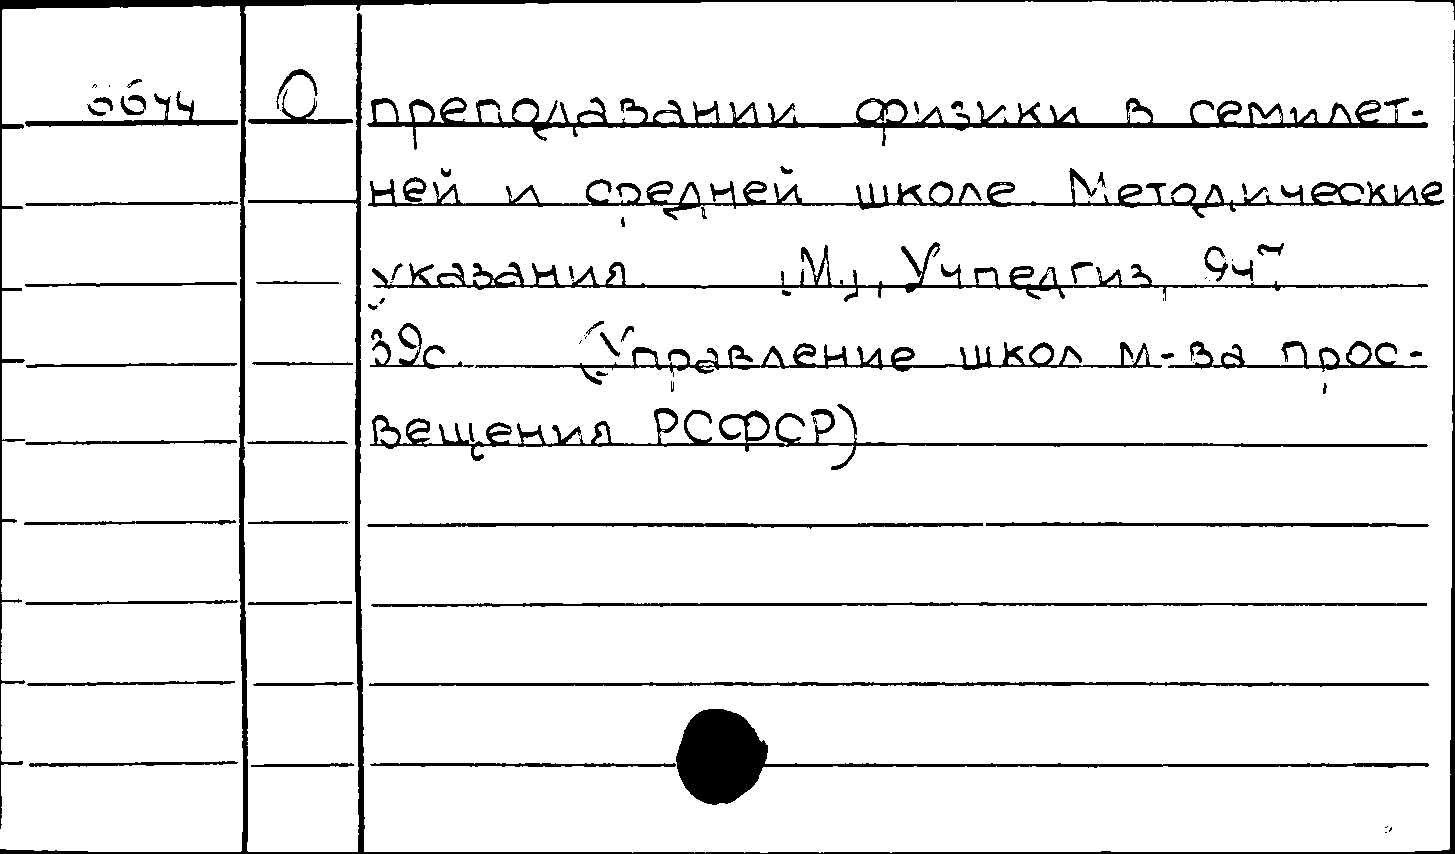 О преподавании физики в семилет-
ней и средней школе. Методические
указания. [М.], Учпедгиз,
39с. (Управление школ м-ва прос-
вещения РСФСР)